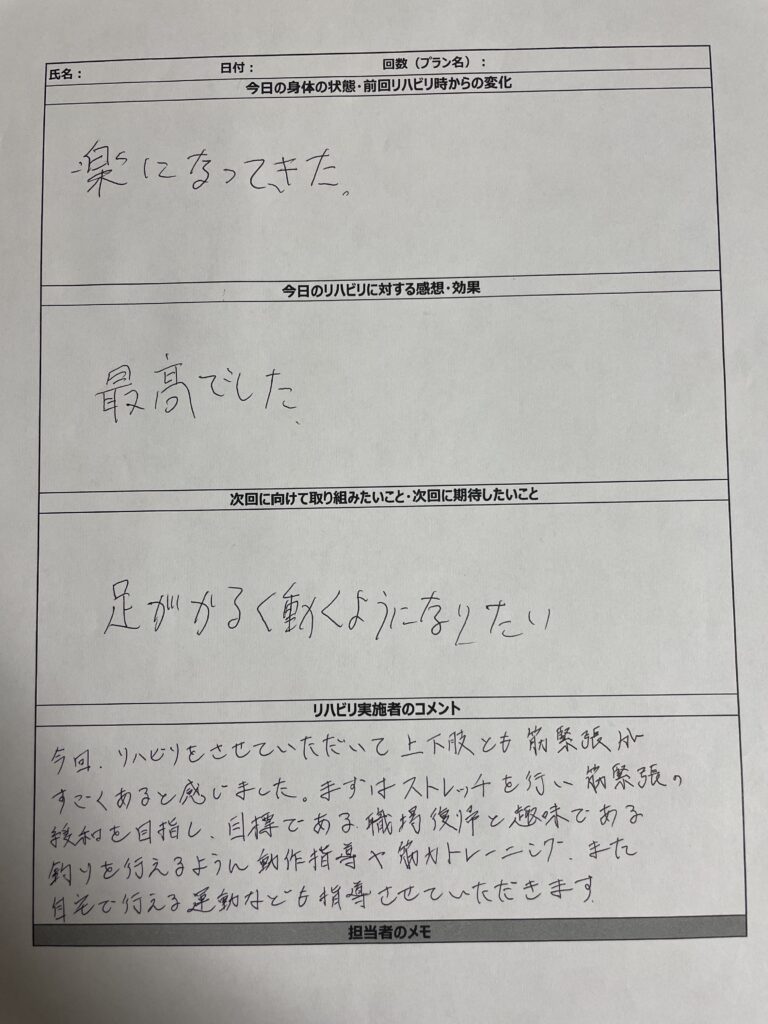 氏名： 日付： 回数（プラン名）：
今日の身体の状態・前回リハビリ時からの変化
楽になってきた。
今日のリハビリに対する感想・効果
最高でした。
次回に向けて取り組みたいこと・次回に期待したいこと
足がかるく動くようになりたい
リハビリ実施者のコメント
今回、リハビリをさせていただいて上下肢とも筋緊張が
すごくあると感じました。まずはストレッチを行い筋緊張の
緩和を目指し、目標である職場復帰と趣味である
釣りを行えるように動作指導や筋力トレーニング、また
自宅で行える運動なども指導させていただきます
担当者のメモ